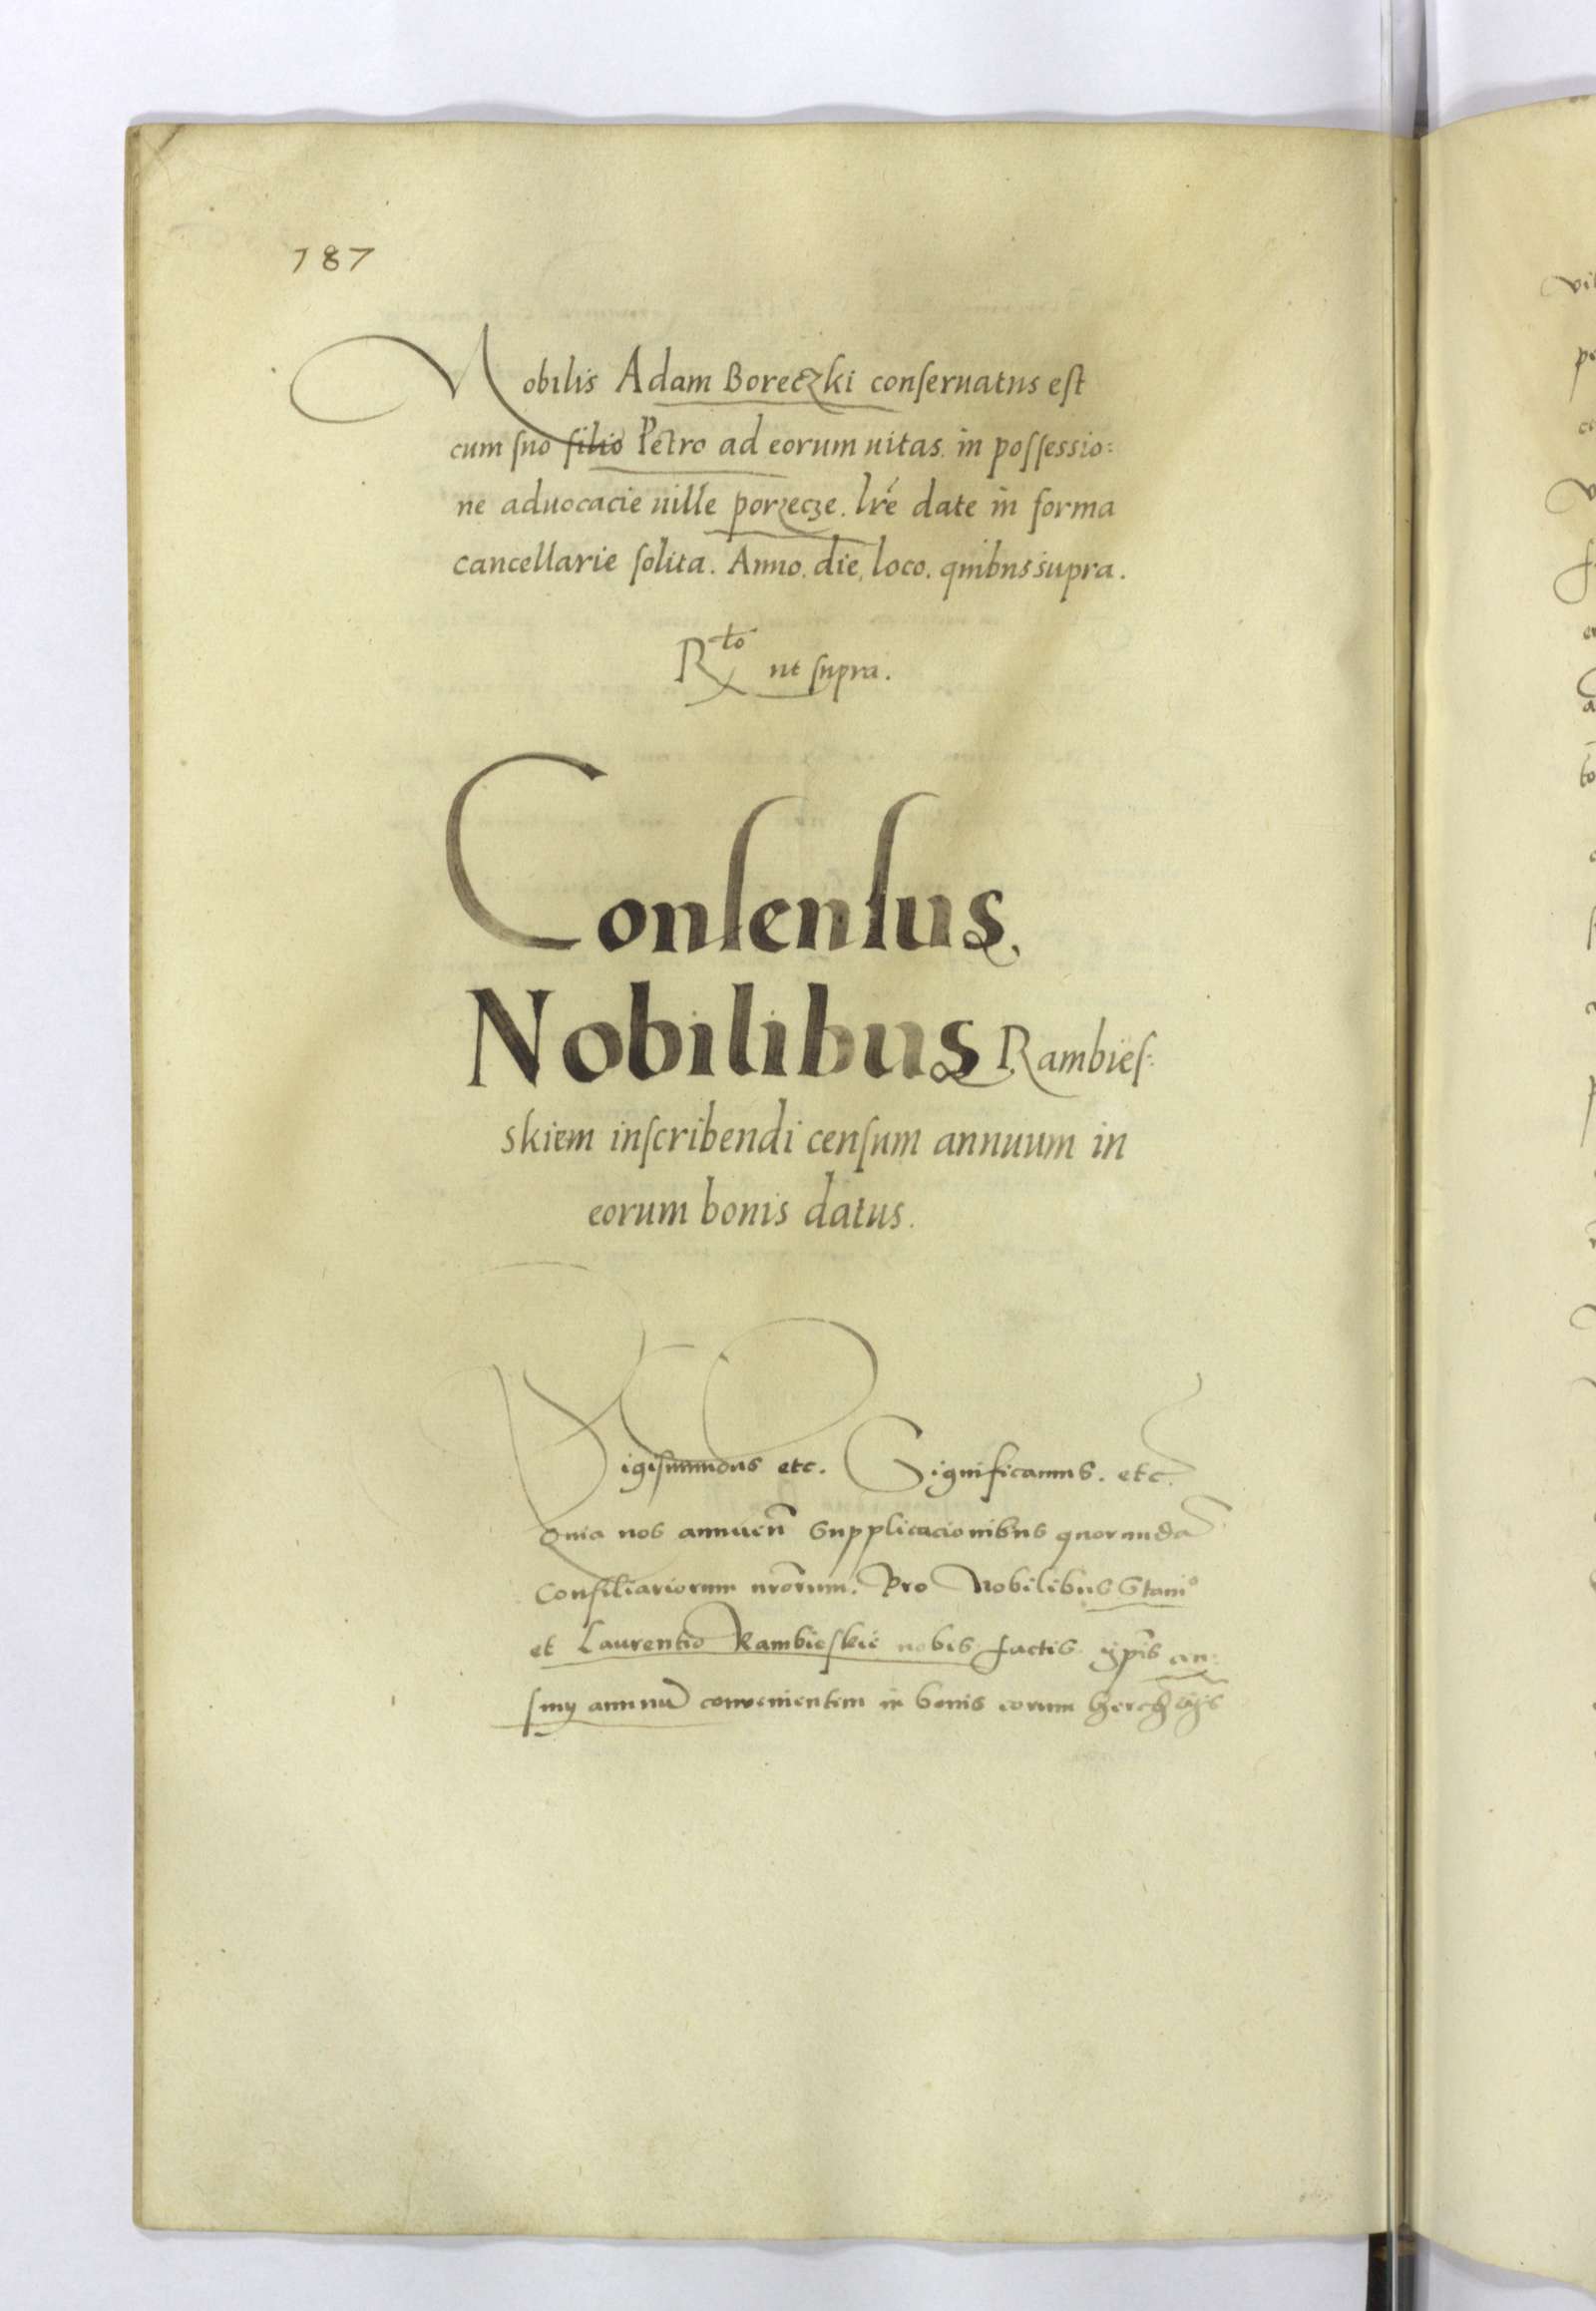 187
Nobilis Adam Boreczki conseruatus est
cum suo filio Petro ad eorum uitas in possessio:
ne aduocacie uille porzecze. lre date in forma
cancellarie solita. Anno, die, loco. quibus supra.
Rto ut supra.
Consensus
Nobilibus Rambies:
skiem inscribendi censum annuum in
eorum bonis datus.
Sigismundus etc. Significamus. etc.
Quia nos annuen supplicacionibus quorundā
Consiliariorum nrorum. Pro Nobilibus Stanio
et Laurentio Rambieskie nobis factis
annuū convenientem in bonis eorum